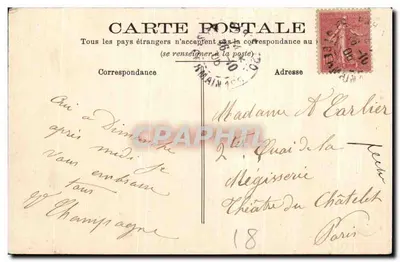 CARTE POSTALE
Tous les pays étrangers n'acceptent pas la correspondance au
(se renseigner à la poste)
Correspondance
Adresse
Oui à Dimanche
après midi je
vous embrasse
tous
Champagne
Madame A Carlier
2 Quai de la
Mégisserie
Théâtre du Châtelet
Paris
18
16-10
08
GERMAIN
CPArama.com